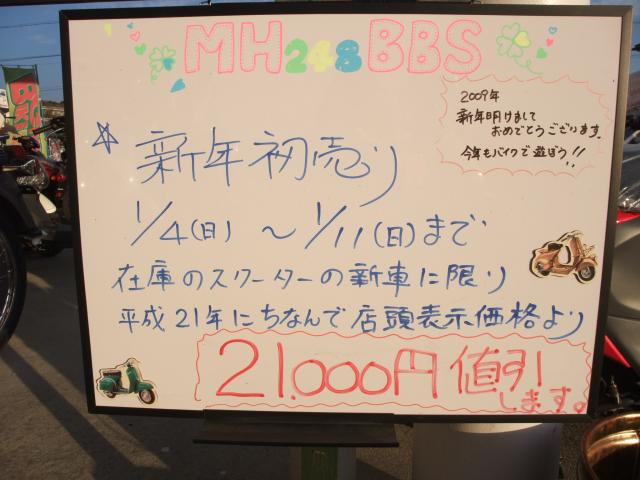 MH248BBS
2009年
新年明けまして
おめでとうございます。
今年もバイクで遊ぼう!!
☆新年初売り
1/4(日)～1/11(日)まで
在庫のスクーターの新車に限り
平成21年にちなんで店頭表示価格より
21.000円値引
します。